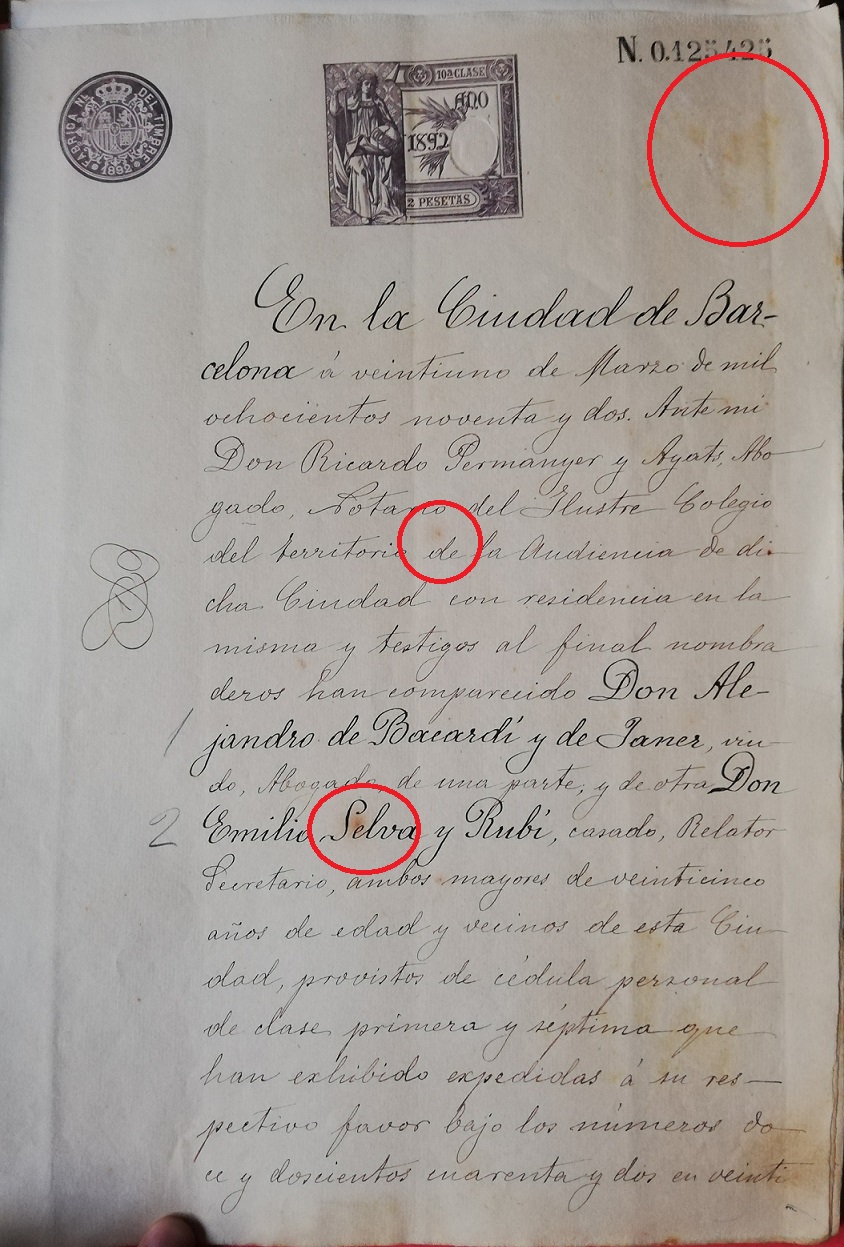 N. 0.125.425
FABRICA NL. DEL TIMBRE
1892
10ª CLASE
AÑO
1892
2 PESETAS
En la Ciudad de Bar-
celona á veintiuno de Marzo de mil
ochocientos noventa y dos. Ante mi
Don Ricardo Permanyer y Ayats, Abo
gado, Notario del Ilustre Colegio
del territorio de la Audiencia de di-
cha Ciudad con residencia en la
misma y testigos al final nombra
deros han comparecido Don Ale-
1
jandro de Bacardí y de Janer, viu-
do, Abogado, de una parte, y de otra Don
2
Emilio Selva y Rubí, casado, Relator
Secretario, ambos mayores de veinticinco
años de edad y vecinos de esta Ciu-
dad, provistos de cédula personal
de clase primera y séptima que
han exhibido expedidas á su res-
pectivo favor bajo los números do
ce y doscientos cuarenta y dos en veinti